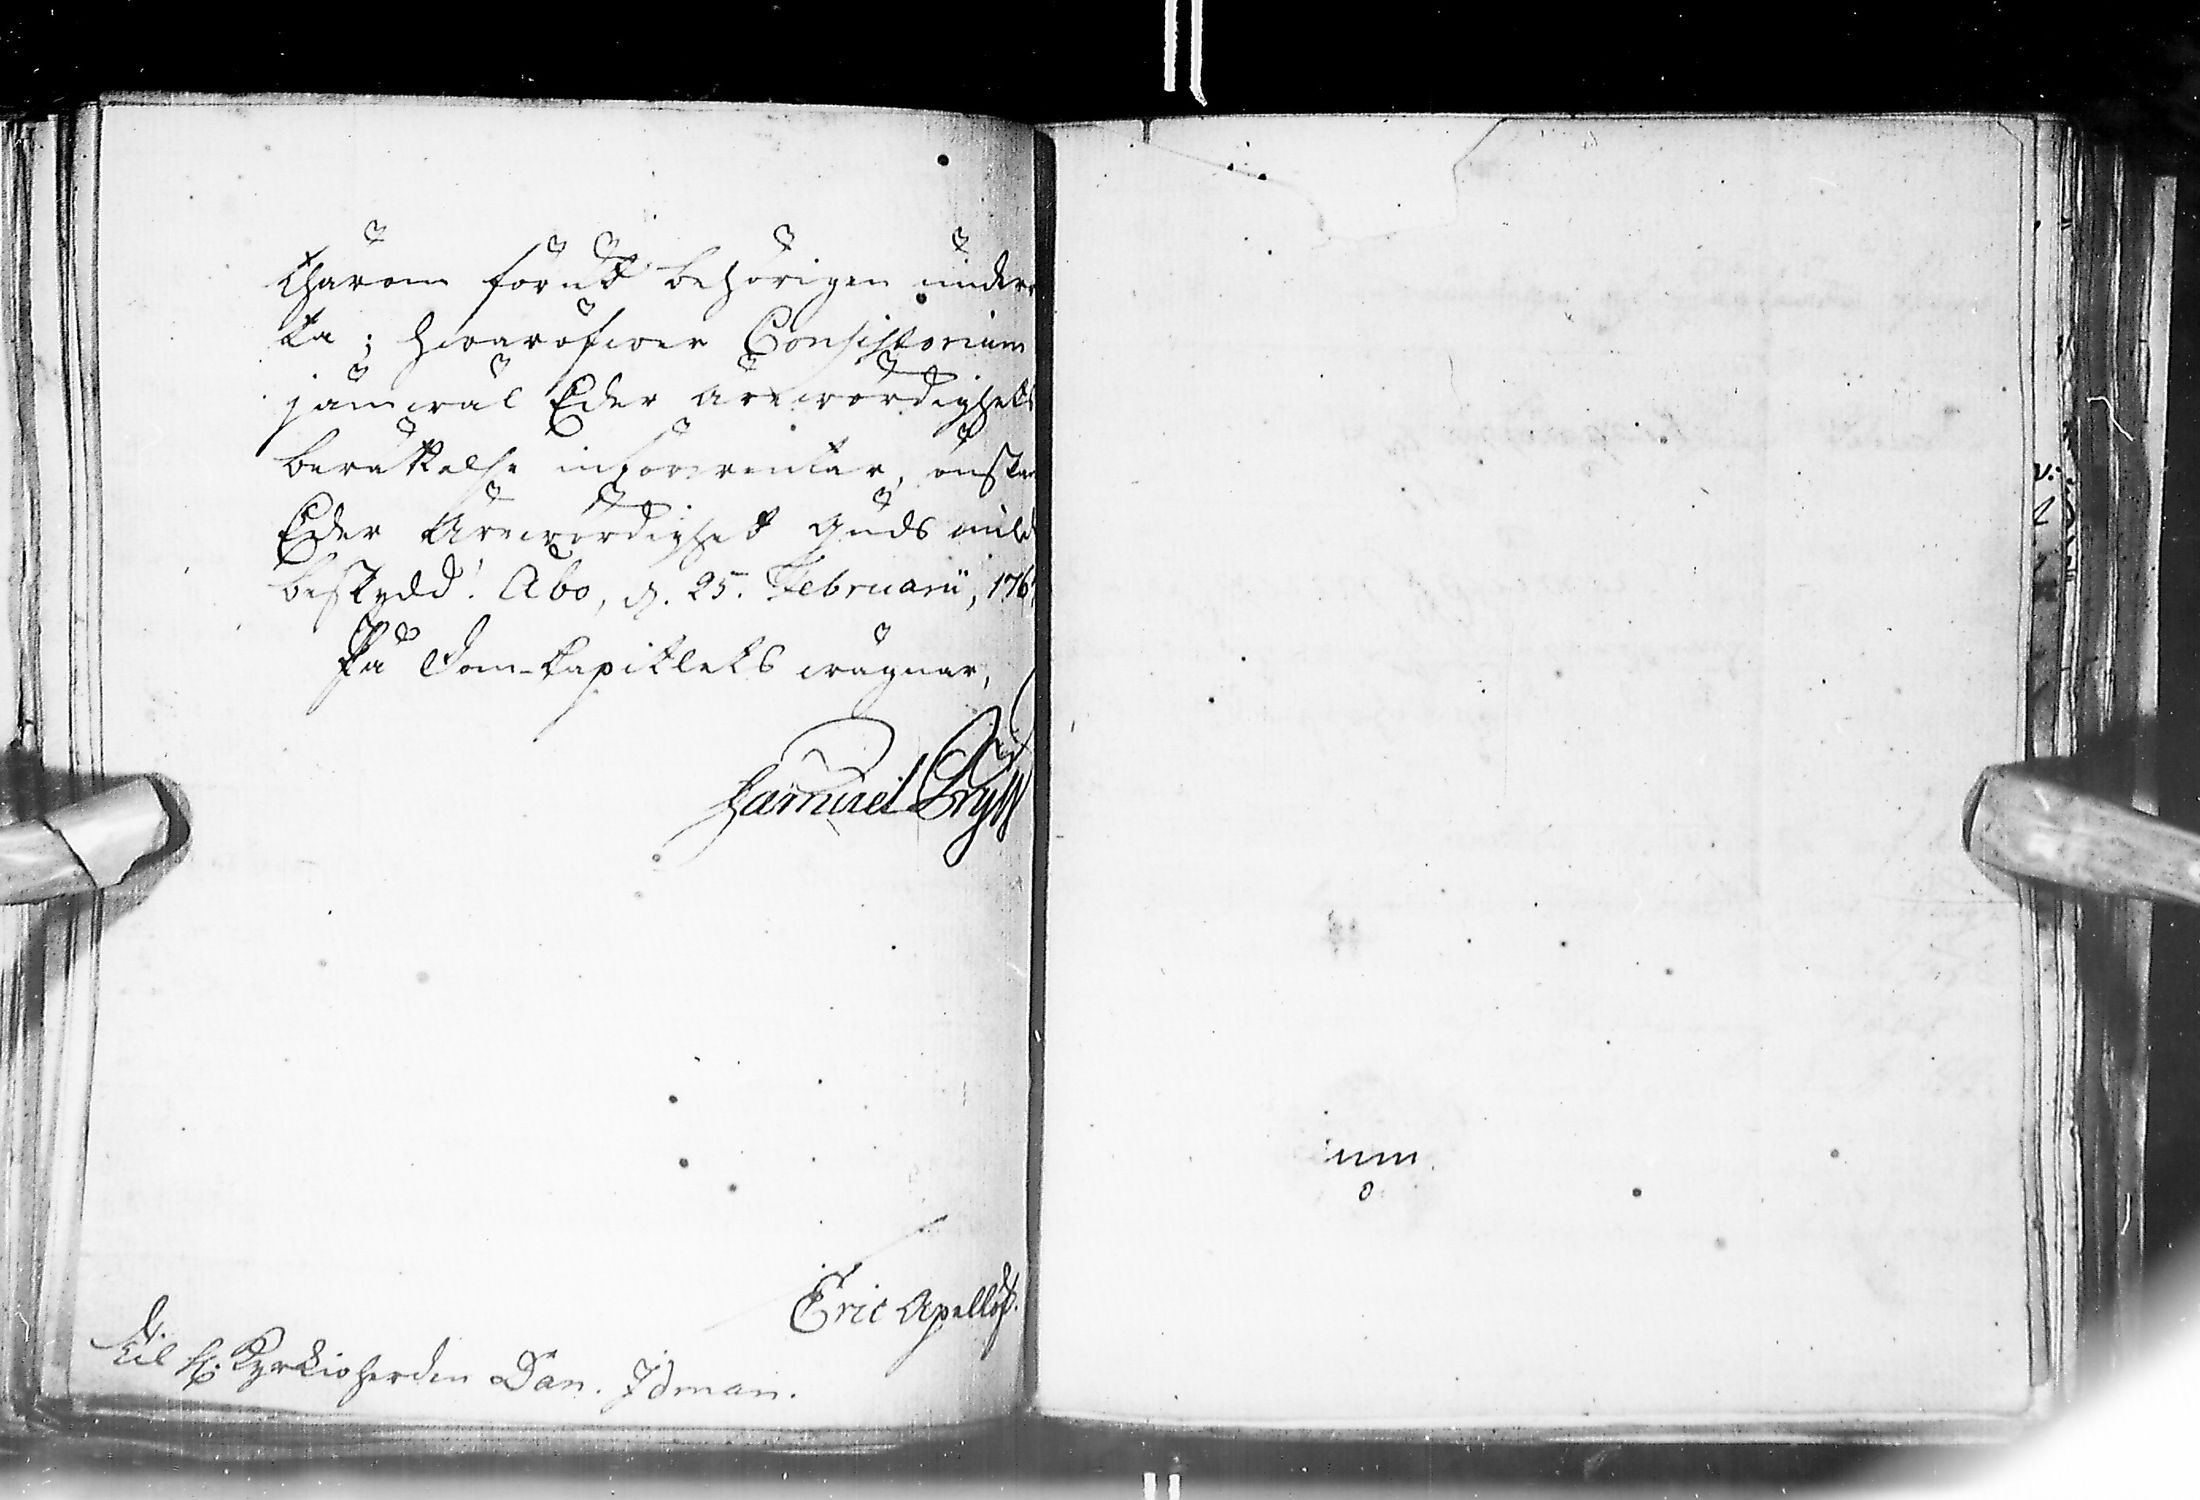 tharom förut behörigen under
ta; hwaröfwer Consistorium
jämwäl Eder ärewördighets
berättelse införwäntar, önskar
Eder Ärewördighet Guds mild
beskydd! Åbo, d. 25. Februarii, 176
På Dom-Capitlets wägnar,
Samuel Pryss
Eric Apellöf.
til H. Kyrkioherden Dan. Idman.
um